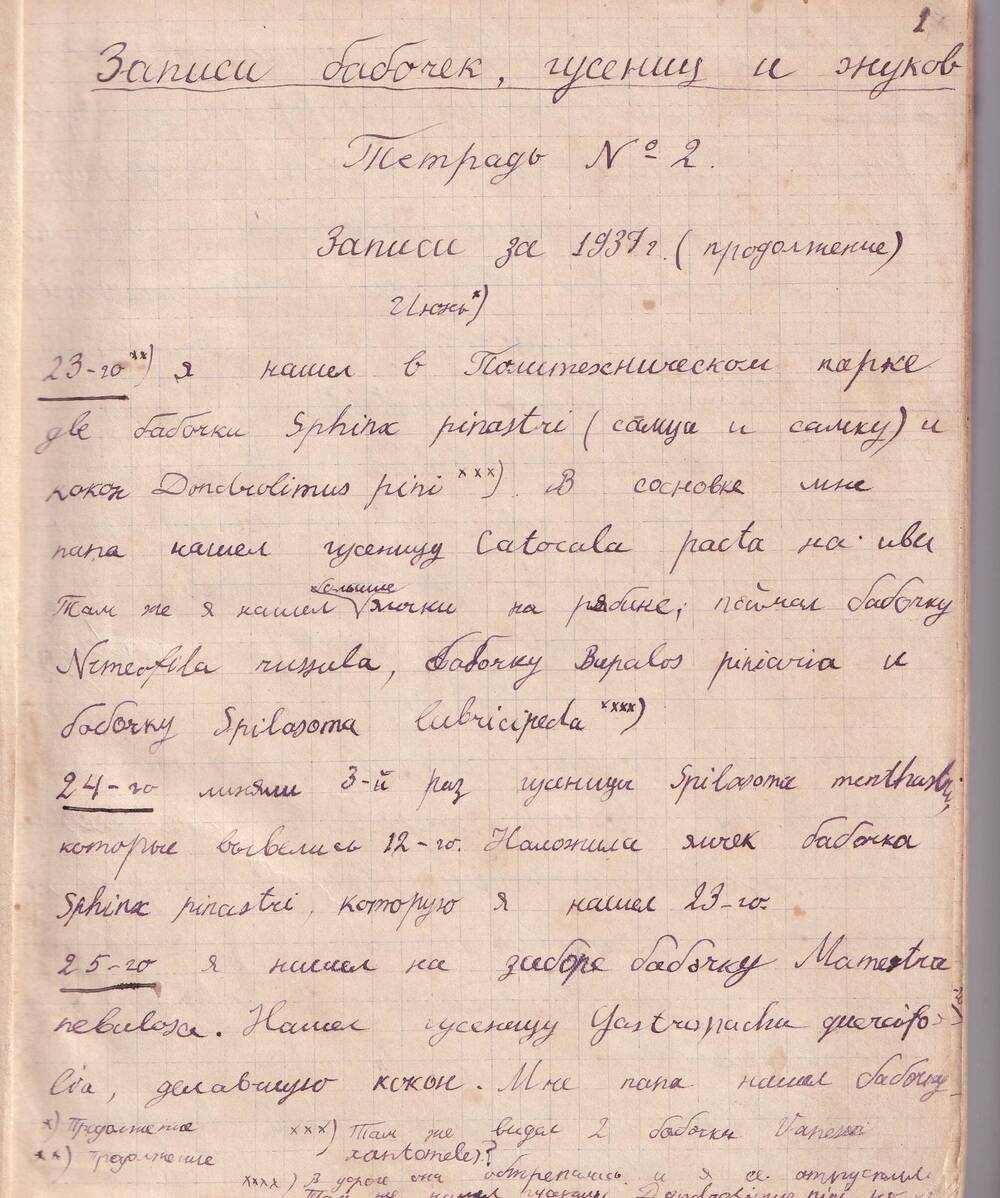 1
Записи бабочек, гусениц и жуков
Тетрадь № 2.
Записи за 1937 г. (продолжение)
Июнь x)
23-го xx) я нашел в Политехническом парке
две бабочки Sphinx pinastri (самца и самку) и
кокон Dondrolimus pini xxx). В сосновке мне
папа нашел гусеницу Catocala pacta на иве
больше
Там же я нашел V яички на рябине; поймал бабочку
Nemeofila russula, бабочку Bupalos piniaria и
бабочку Spilosoma lubricipeda xxxx)
24-го линяли 3-й раз гусеницы Spilosoma menthastri,
которые вывелись 12-го. Наложила яичек бабочка
Sphinx pinastri, которую я нашел 23-го.
25-го я нашел на заборе бабочку Mamestra
nebulosa. Нашел гусеницу Gastropacha quercifo-
lia, делавшую кокон. Мне папа нашел бабочку
x) Продолжение
xx) продолжение
xxx) Там же видел 2 бабочки Vanessa
xantomeles?
xxxx) она обтрепались и я отпустил
Там же нашел гусеницу Dondrolimus pini